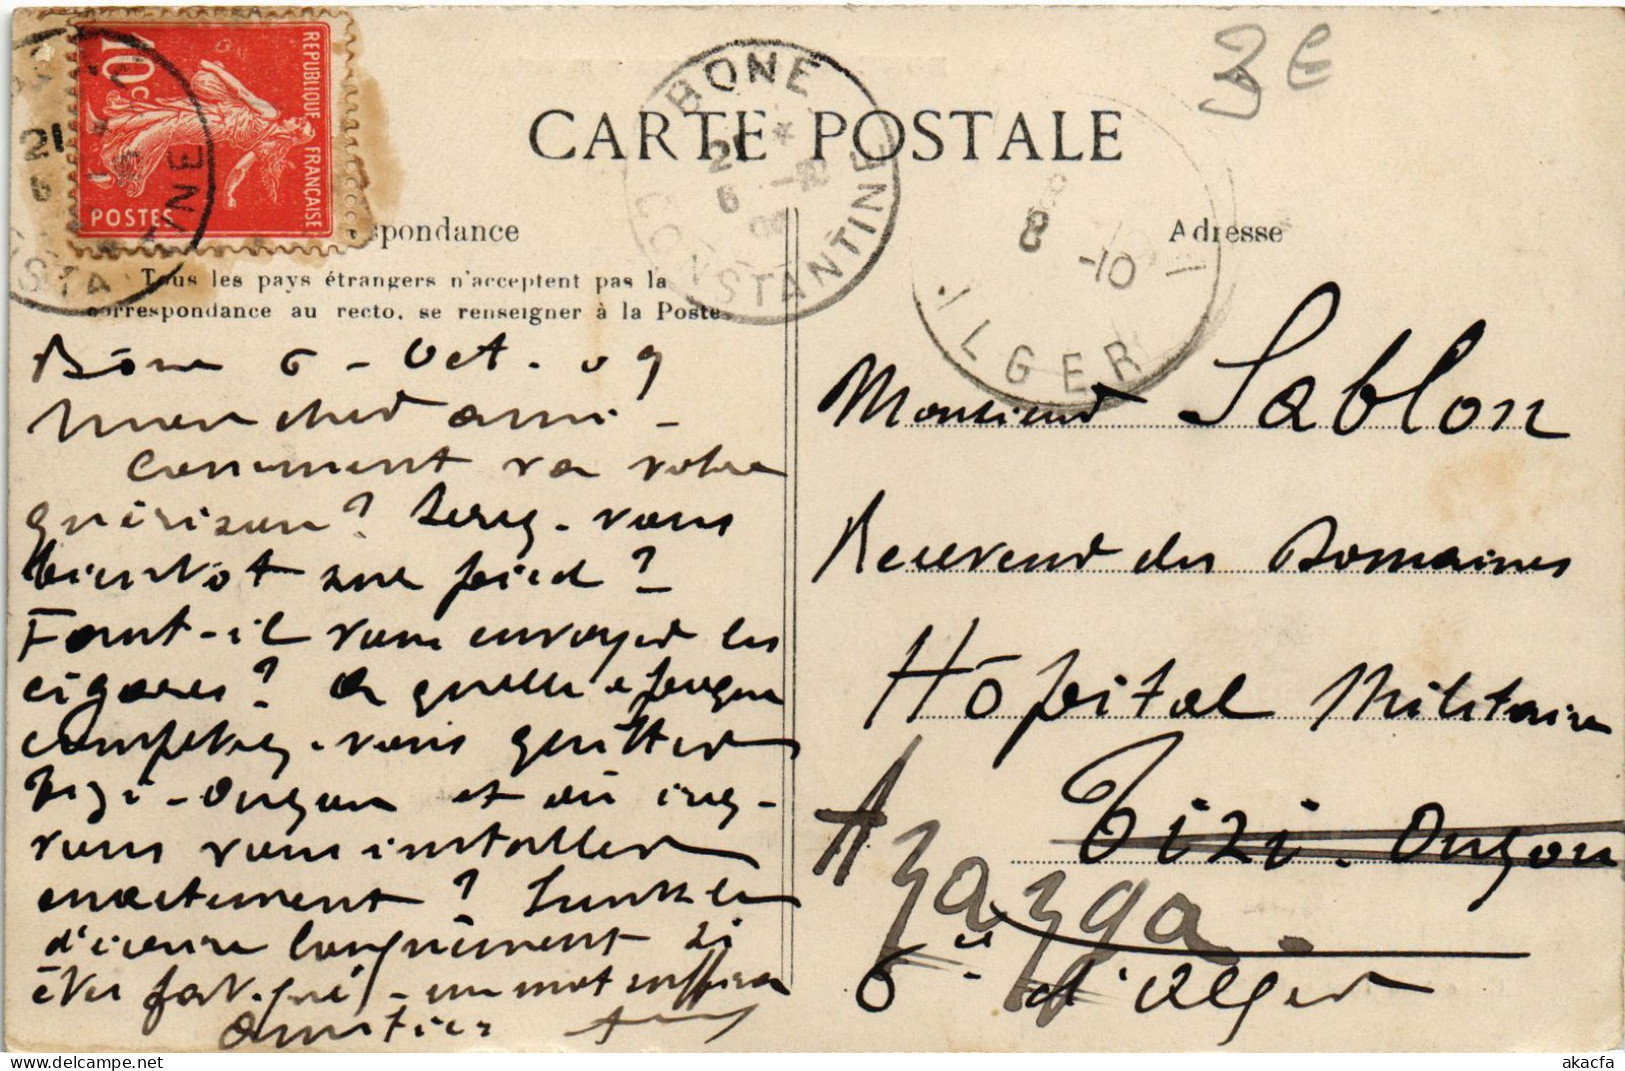 REPUBLIQUE FRANÇAISE
10c
POSTES
BONE
CONSTANTINE
21
6
3E
CARTE POSTALE
8 -10
ALGER
spondance
Adresse
Tous les pays étrangers n'acceptent pas la
correspondance au recto, se renseigner à la Poste
Bône 6 - Oct. 09
Mon cher ami -
Comment va votre
guérison ? Serez-vous
bientôt sur pied ?
Faut-il vous envoyer les
cigares ? A quelle époque
comptez-vous quitter
Tizi-Ouzou et où irez-
vous vous installer
exactement ? Inutile
d'écrire longuement si
êtes fatigué - un mot suffira
Amitiés
Monsieur Sablon
Receveur des Domaines
Hôpital Militaire
Tizi-Ouzou
Azazga.
d'Alger
akacfa.com